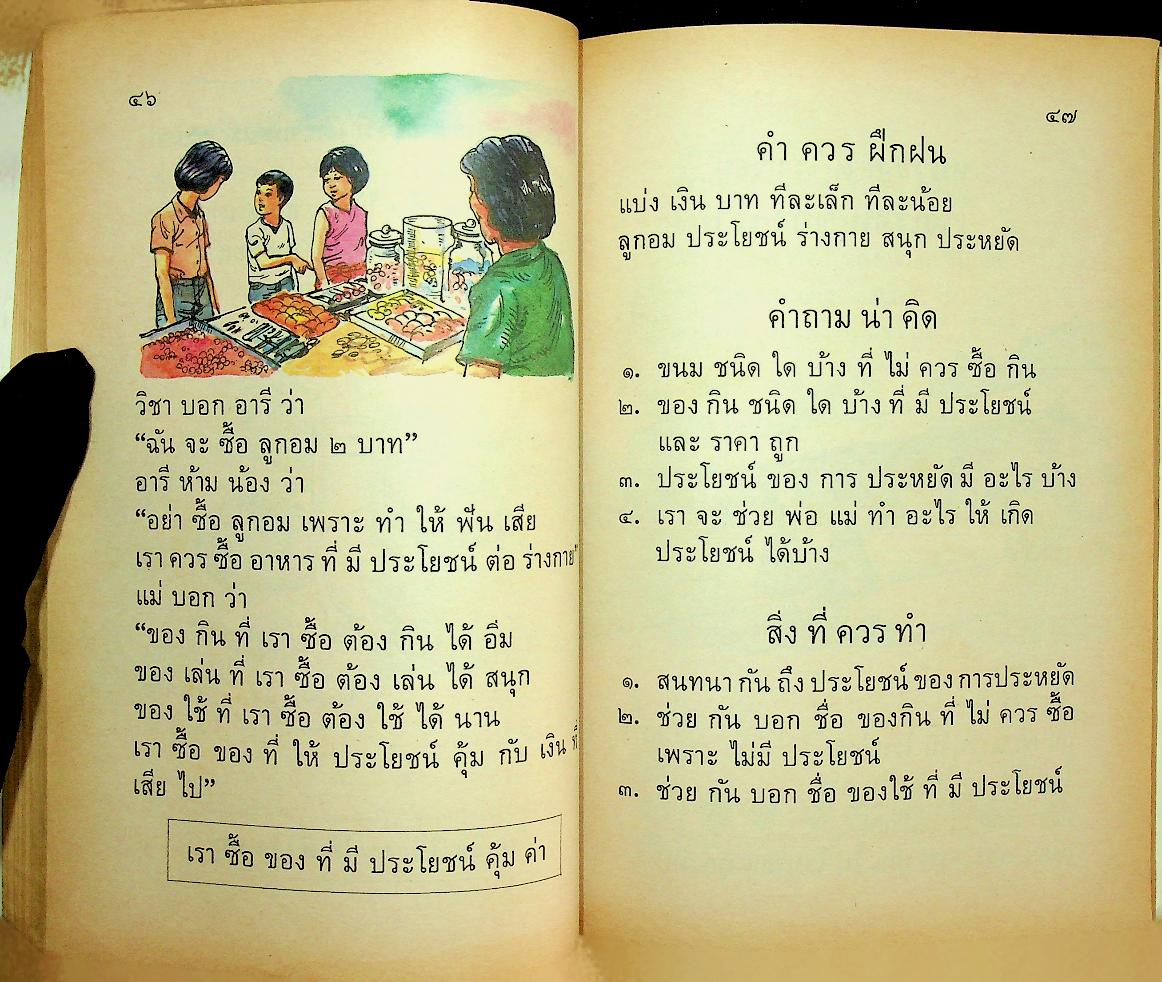 ๔๖
วิชา บอก อารี ว่า
“ฉัน จะ ซื้อ ลูกอม ๒ บาท”
อารี ห้าม น้อง ว่า
“อย่า ซื้อ ลูกอม เพราะ ทำ ให้ ฟัน เสีย
เรา ควร ซื้อ อาหาร ที่ มี ประโยชน์ ต่อ ร่างกาย”
แม่ บอก ว่า
“ของ กิน ที่ เรา ซื้อ ต้อง กิน ได้ อิ่ม
ของ เล่น ที่ เรา ซื้อ ต้อง เล่น ได้ สนุก
ของ ใช้ ที่ เรา ซื้อ ต้อง ใช้ ได้ นาน
เรา ซื้อ ของ ที่ ให้ ประโยชน์ คุ้ม กับ เงิน ที่
เสีย ไป”
เรา ซื้อ ของ ที่ มี ประโยชน์ คุ้ม ค่า
๔๗
คำ ควร ฝึกฝน
แบ่ง เงิน บาท ทีละเล็ก ทีละน้อย
ลูกอม ประโยชน์ ร่างกาย สนุก ประหยัด
คำถาม น่า คิด
๑. ขนม ชนิด ใด บ้าง ที่ ไม่ ควร ซื้อ กิน
๒. ของ กิน ชนิด ใด บ้าง ที่ มี ประโยชน์
และ ราคา ถูก
๓. ประโยชน์ ของ การ ประหยัด มี อะไร บ้าง
๔. เรา จะ ช่วย พ่อ แม่ ทำ อะไร ให้ เกิด
ประโยชน์ ได้บ้าง
สิ่ง ที่ ควร ทำ
๑. สนทนา กัน ถึง ประโยชน์ ของ การประหยัด
๒. ช่วย กัน บอก ชื่อ ของกิน ที่ ไม่ ควร ซื้อ
เพราะ ไม่มี ประโยชน์
๓. ช่วย กัน บอก ชื่อ ของใช้ ที่ มี ประโยชน์